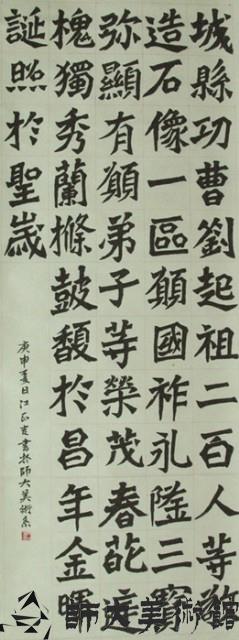 城縣功曹劉起祖二百人等敬
造石像一區願國祚永隆三寶
弥顯有願弟子等榮茂春葩庭
槐獨秀蘭條鼓馥於昌年金暉
誕照於聖歲
庚申夏日江正書於師大美術系
師大美術館